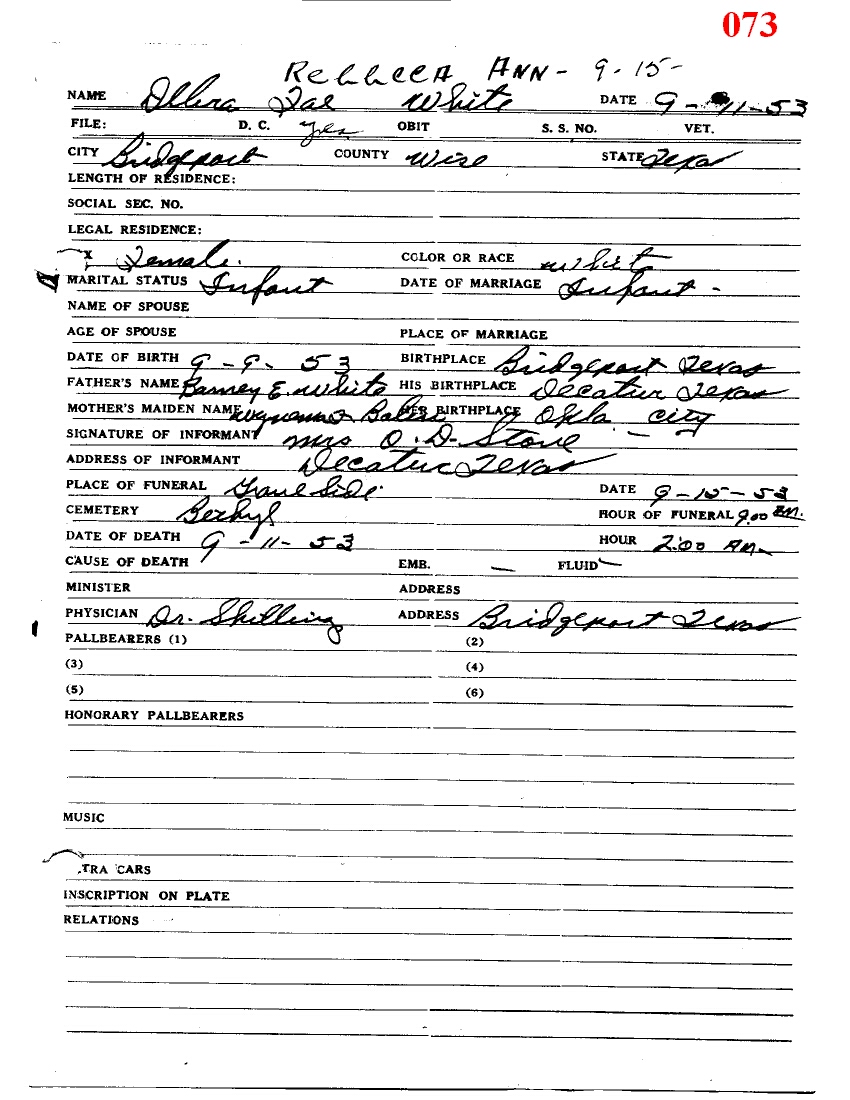 073
REBECCA ANN - 9-15-
NAME White DATE 9-11-53
FILE: D. C. yes OBIT S. S. NO. VET.
CITY Bridgeport COUNTY Wise STATE Texas
LENGTH OF RESIDENCE:
SOCIAL SEC. NO.
LEGAL RESIDENCE:
X Female. COLOR OR RACE White
MARITAL STATUS Infant DATE OF MARRIAGE Infant -
NAME OF SPOUSE
AGE OF SPOUSE PLACE OF MARRIAGE
DATE OF BIRTH 9-9-53 BIRTHPLACE Bridgeport Texas
FATHER'S NAME Barney E. White HIS BIRTHPLACE Decatur Texas
MOTHER'S MAIDEN NAME HER BIRTHPLACE Okla city
SIGNATURE OF INFORMANT Mrs O. D. Stone
ADDRESS OF INFORMANT Decatur Texas
PLACE OF FUNERAL Grave Side DATE 9-15-53
CEMETERY HOUR OF FUNERAL 9:00
DATE OF DEATH 9-11-53 HOUR 2:00 AM
CAUSE OF DEATH EMB. — FLUID —
MINISTER ADDRESS
PHYSICIAN Dr. Shilling ADDRESS Bridgeport Texas
PALLBEARERS (1) (2)
(3) (4)
(5) (6)
HONORARY PALLBEARERS
MUSIC
TRA CARS
INSCRIPTION ON PLATE
RELATIONS